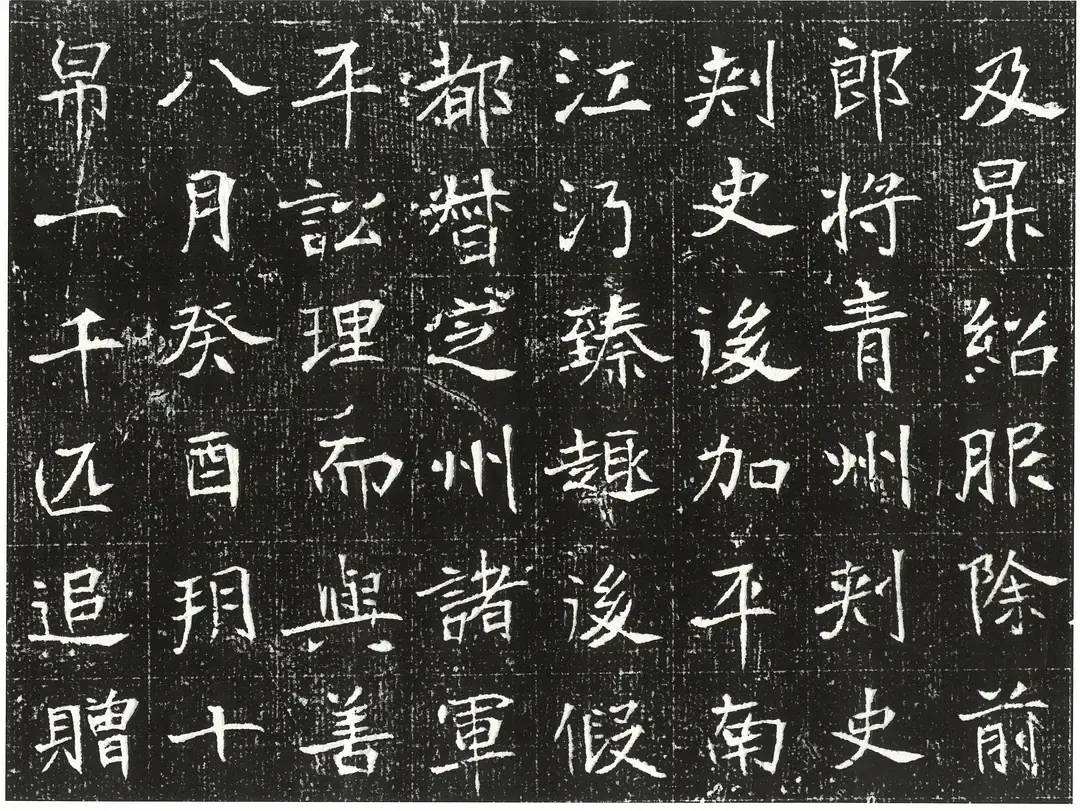 及昇紹服除前
郎将青州刾史
刾史後加平南
江沔臻後假
都督州諸軍
平訟理而與善
八月癸酉朔十
帛一千匹追贈